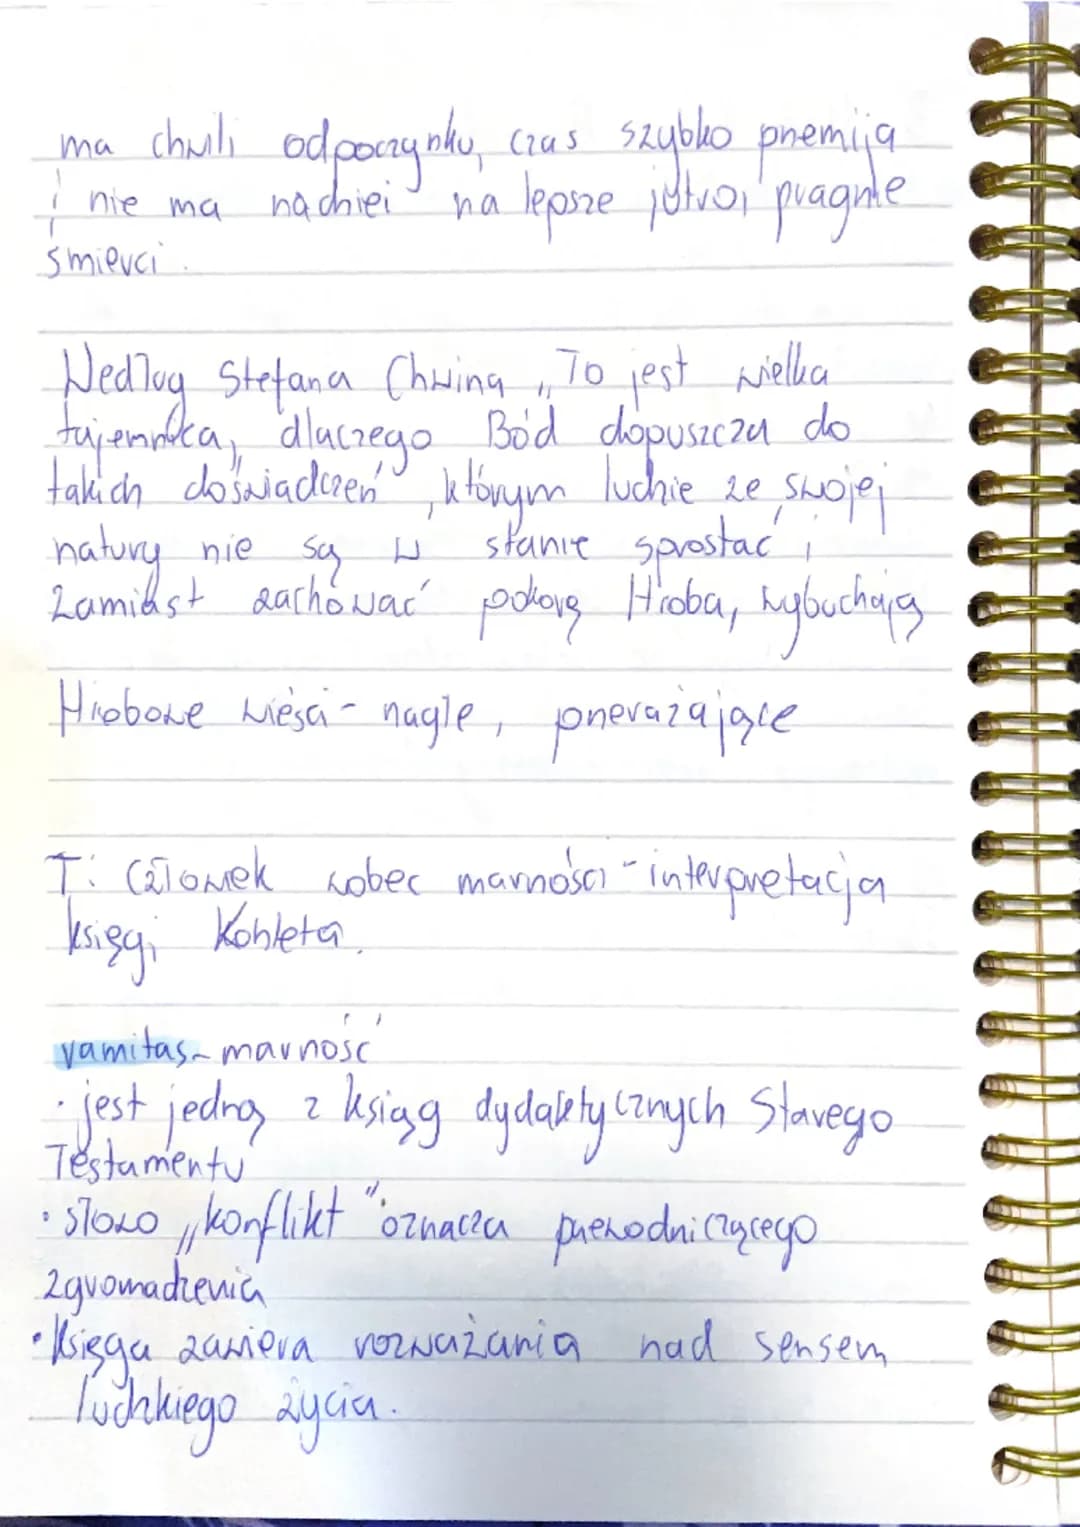 ma chwili odpoczynku, czas szybko przemija
i nie ma nadziei na lepsze jutro, pragnie
śmierci.
Według Stefana Chwina „To jest wielka
tajemnica, dlaczego Bód dopuszcza do
takich doświadczeń, którym ludzie ze swojej
natury nie są w stanie sprostać i
zamiast zachować pokorę Hioba, wybuchają
Hiobowe wieści - nagłe, przerażające
T: Człowiek wobec marności - interpretacja
księgi Kohleta.
vamitas - marność
· jest jedną z ksiąg dydaktycznych Starego
Testamentu
· słowo „konflikt" oznacza przewodniczącego
zgromadzenia
· Księga zawiera rozważania nad sensem
ludzkiego życia.